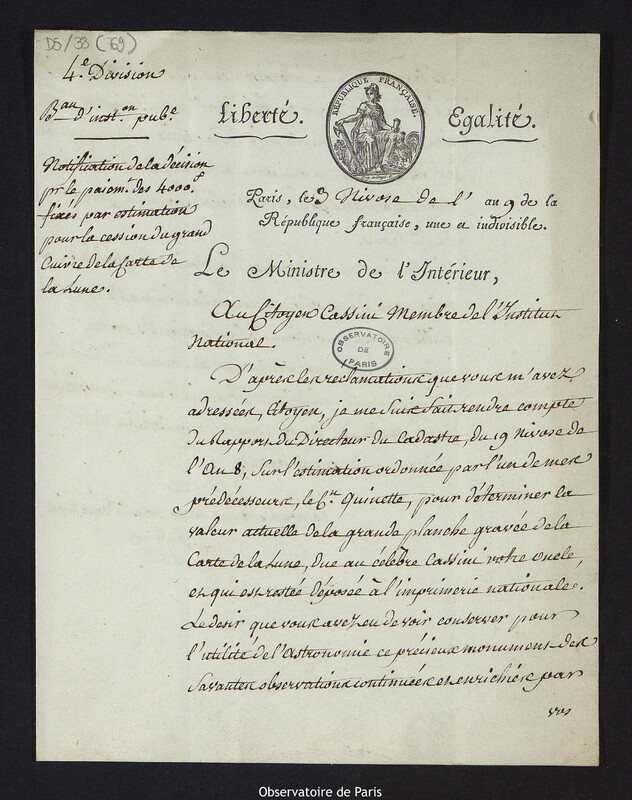 D5/38 (69)
4.e Division
B.au d'inst.on pub.e
Notification de la décision
pr. le paiem.t des 4000.f
fixés par estimation
pour la cession du grand
Cuivre de la Carte de
la Lune.
Liberté.
RÉPUBLIQUE FRANÇAISE.
Egalité.
Paris, le 3 Nivose de l' an 9 de la
République française, une et indivisible.
Le Ministre de l'Intérieur,
Au Citoyen Cassini Membre de l'Institut
National.
OBSERVATOIRE
DE
PARIS
D'après les réclamations que vous m'avez
adressées, Citoyen, je me suis fait rendre compte
du Rapport du Directeur du Cadastre, du 19 Nivose de
l'An 8, sur l'estimation ordonnée par l'un de mes
prédécesseurs, le C.en Quinette, pour déterminer la
valeur actuelle de la grande planche gravée de la
Carte de la Lune, due au célèbre Cassini votre oncle,
et qui est restée déposée à l'imprimerie nationale.
Le desir que vous avez eu de voir conserver pour
l'utilité de l'Astronomie ce précieux monument des
Savantes observations continuées et enrichies par
vos
Observatoire de Paris